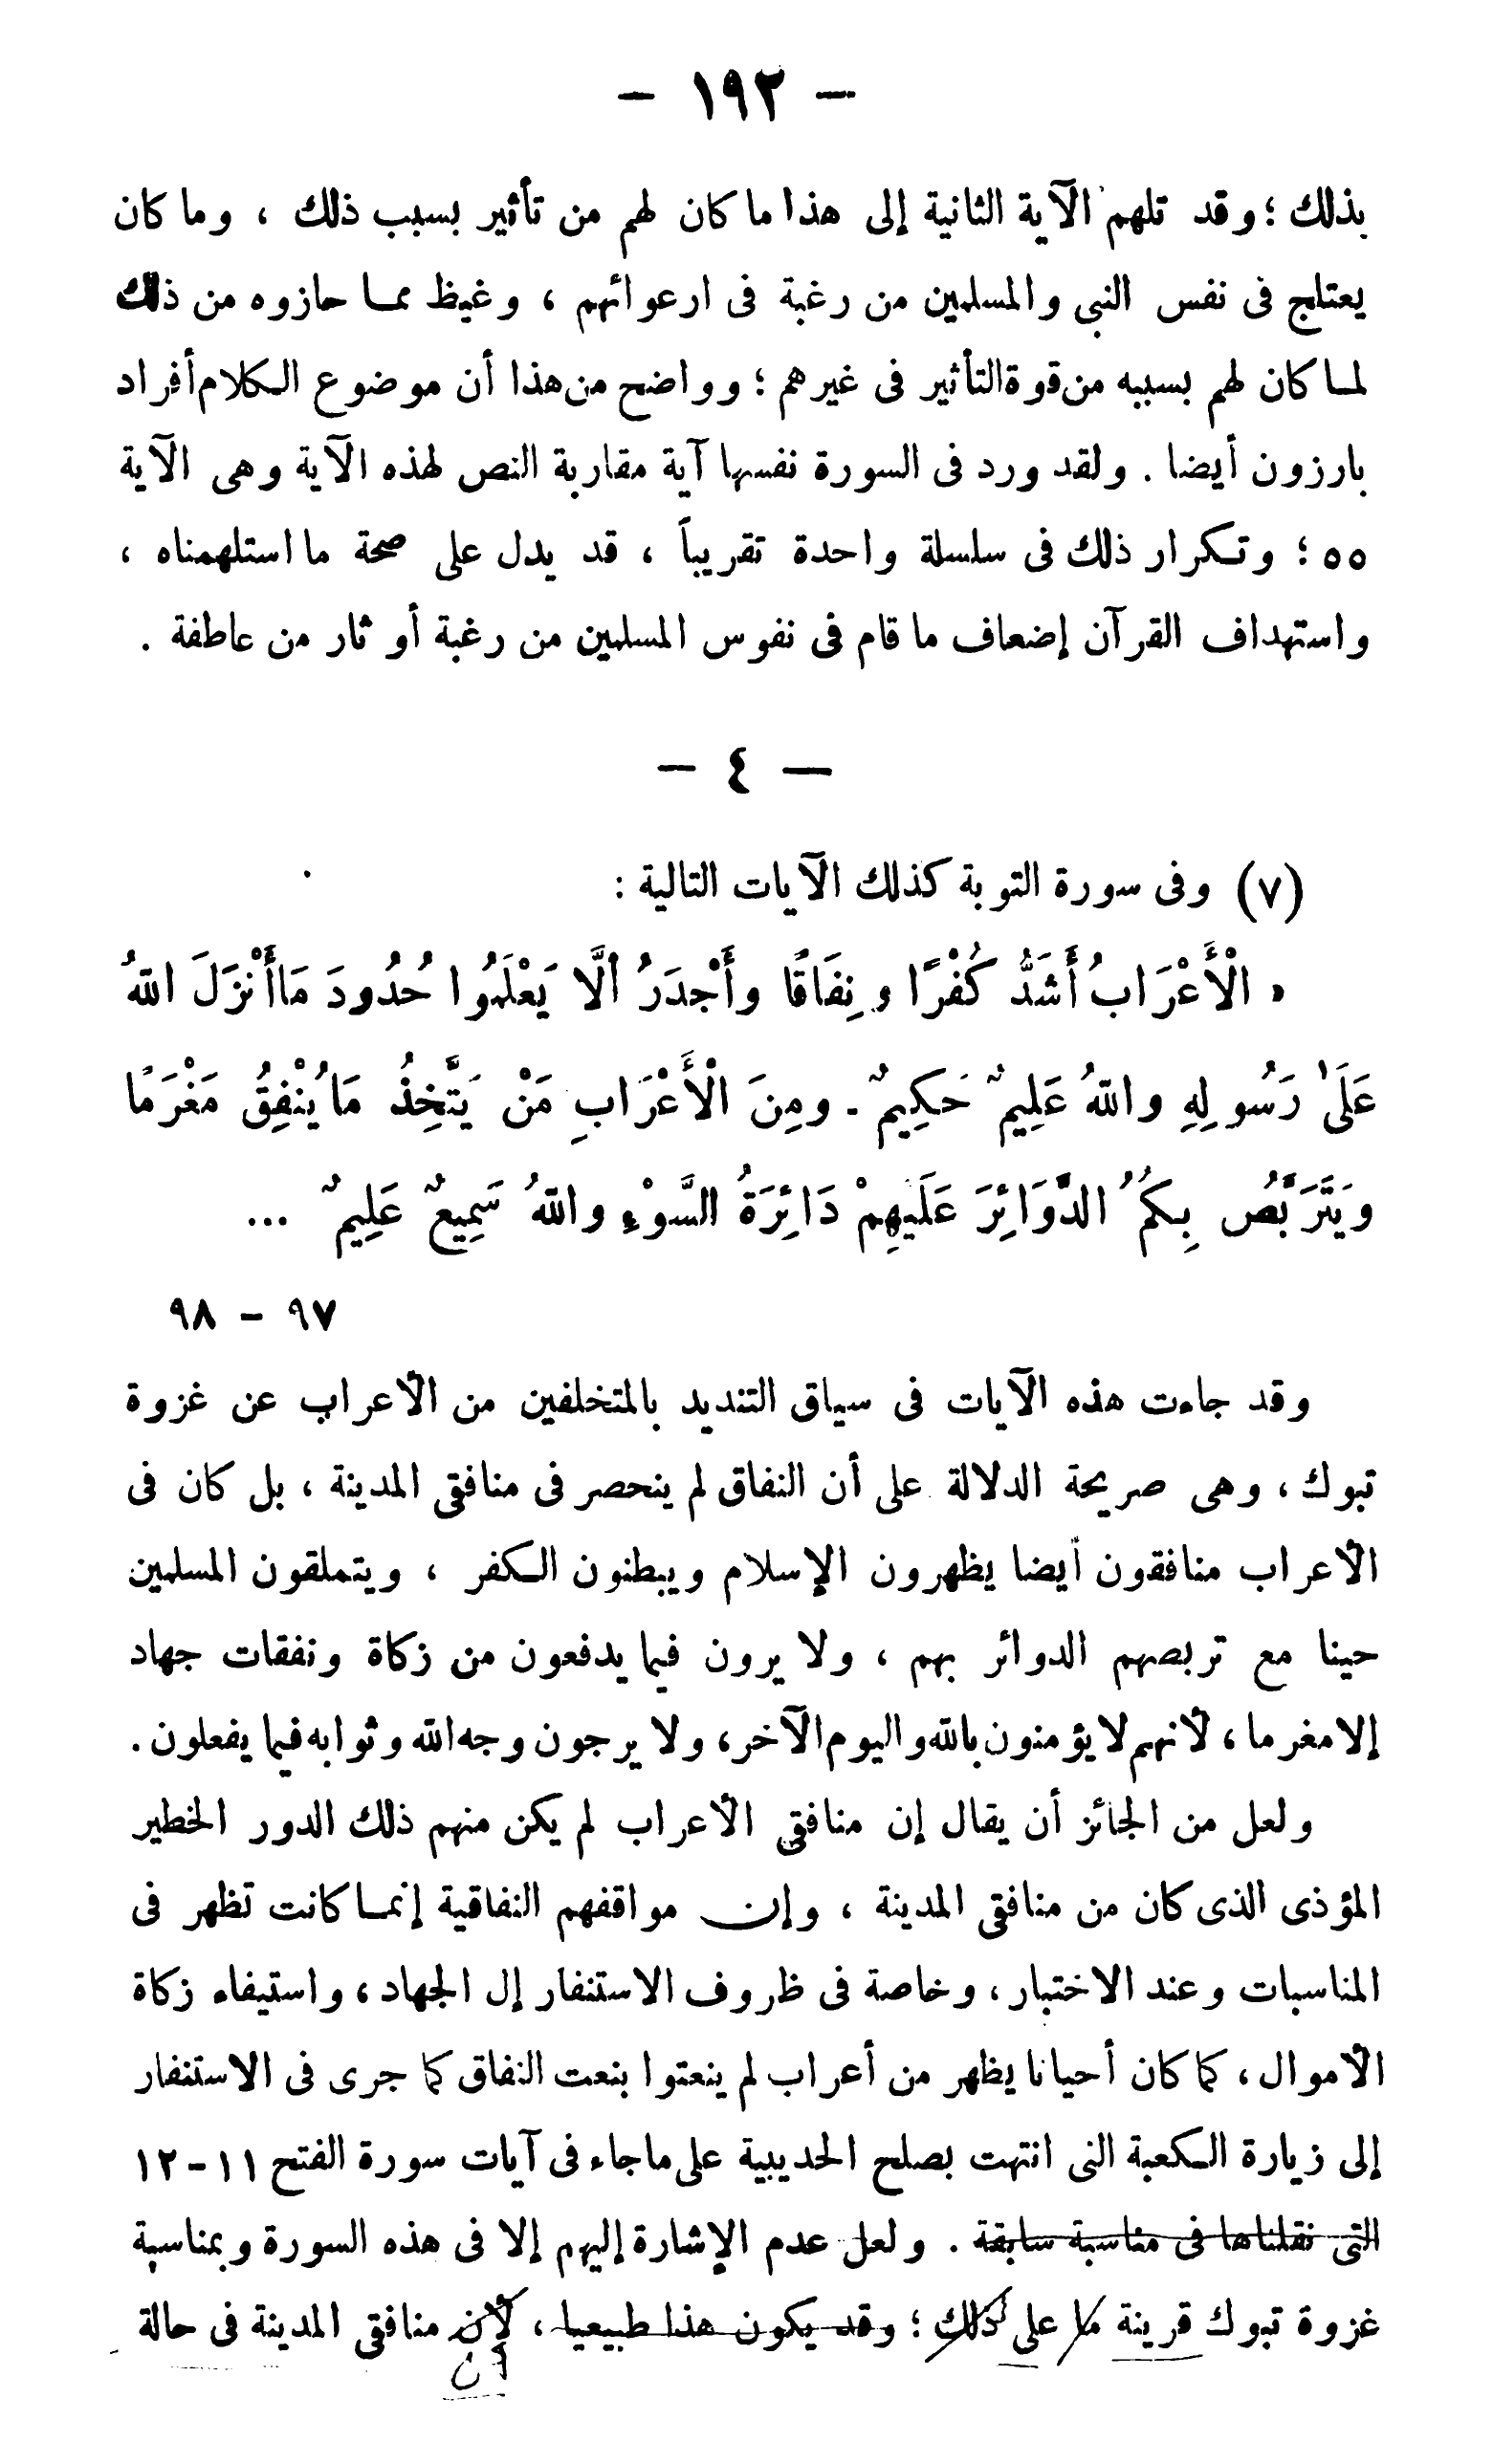 — ١٩٢ —
بذلك ؛ وقد تلهم الآية الثانية إلى هذا ما كان لهم من تأثير بسبب ذلك ، وما كان
يعتلج فى نفس النبى والمسلمين من رغبة فى ارعوائهم ، وغيظ مما حازوه من ذلك
لما كان لهم بسببه من قوة التأثير فى غيرهم ؛ وواضح من هذا أن موضوع الكلام أفراد
بارزون أيضا . ولقد ورد فى السورة نفسها آية مقاربة النص لهذه الآية وهى الآية
٥٥ ؛ وتكرار ذلك فى سلسلة واحدة تقريباً ، قد يدل على صحة ما استلهمناه ،
واستهداف القرآن إضعاف ما قام فى نفوس المسلمين من رغبة أو ثار من عاطفة .
— ٤ —
(٧) وفى سورة التوبة كذلك الآيات التالية :
« الْأَعْرَابُ أَشَدُّ كُفْرًا ونِفَاقًا وأَجْدَرُ أَلَّا يَعْلَمُوا حُدُودَ مَا أَنْزَلَ اللهُ
عَلَىٰ رَسُولِهِ واللهُ عَلِيمٌ حَكِيمٌ . ومِنَ الْأَعْرَابِ مَنْ يَتَّخِذُ مَا يُنْفِقُ مَغْرَمًا
ويَتَرَبَّصُ بِكمُ الدَّوَائِرَ عَلَيهِمْ دَائِرَةُ السَّوْءِ واللهُ سَمِيعٌ عَلِيمٌ ...
٩٧ — ٩٨
وقد جاءت هذه الآيات فى سياق التنديد بالمتخلفين من الأعراب عن غزوة
تبوك ، وهى صريحة الدلالة على أن النفاق لم ينحصر فى منافقى المدينة ، بل كان فى
الأعراب منافقون أيضا يظهرون الإسلام ويبطنون الكفر ، ويتملقون المسلمين
حينا مع تربصهم الدوائر بهم ، ولا يرون فيما يدفعون من زكاة ونفقات جهاد
إلا مغرما ، لأنهم لا يؤمنون بالله واليوم الآخر ، ولا يرجون وجه الله وثوابه فيما يفعلون .
ولعل من الجائز أن يقال إن منافقى الأعراب لم يكن منهم ذلك الدور الخطير
المؤذى الذى كان من منافقى المدينة ، وإن مواقفهم النفاقية إنما كانت تظهر فى
المناسبات وعند الاختبار ، وخاصة فى ظروف الاستنفار إلى الجهاد ، واستيفاء زكاة
الأموال ، كما كان أحيانا يظهر من أعراب لم ينعتوا بنعت النفاق كما جرى فى الاستنفار
إلى زيارة الكعبة التى انتهت بصلح الحديبية على ما جاء فى آيات سورة الفتح ١١ - ١٢
التى نقلناها فى مناسبة سابقة . ولعل عدم الإشارة إليهم إلا فى هذه السورة وبمناسبة
غزوة تبوك قرينة ما على ذلك ؛ وقد يكون هذا طبيعيا ، لأن منافقى المدينة فى حالة